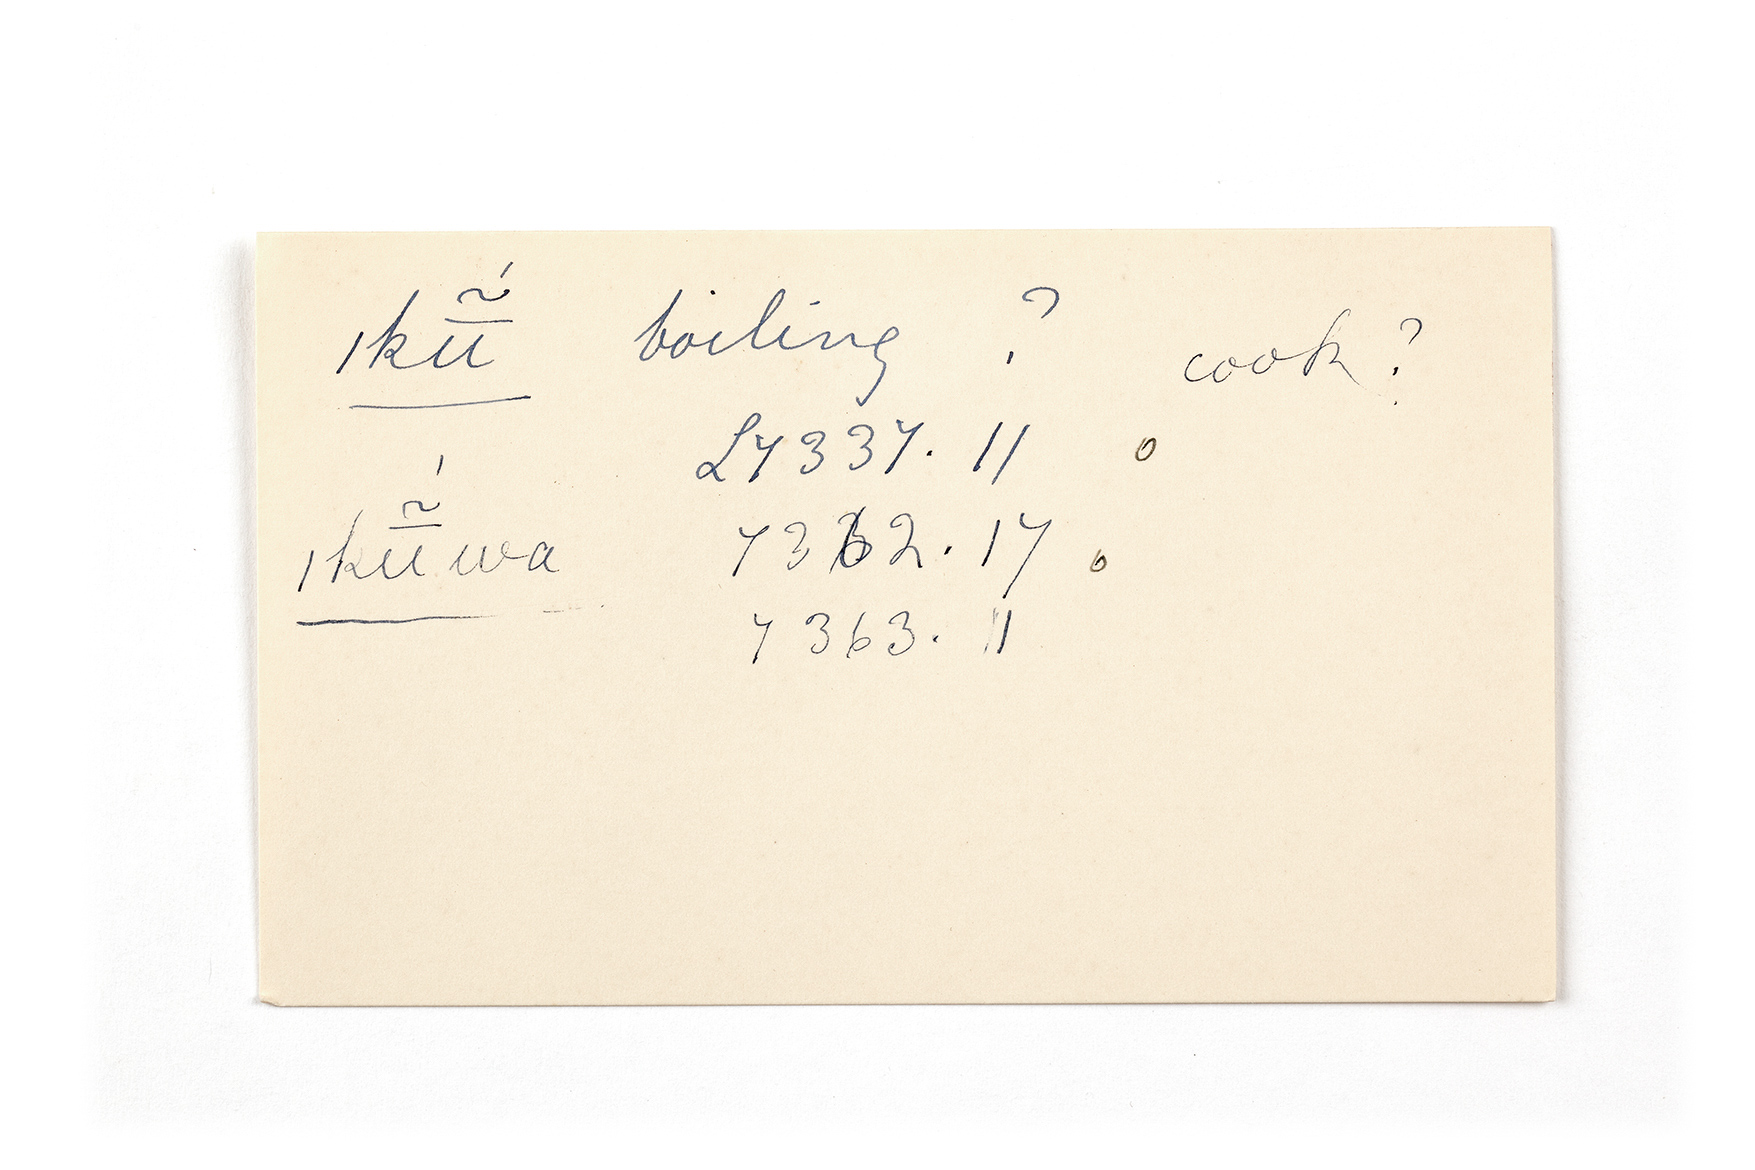 ǀkū̃́ boiling ? cook?
L7337. 11 o
ǀkū̃́wa 7362. 17 o
7363. 11